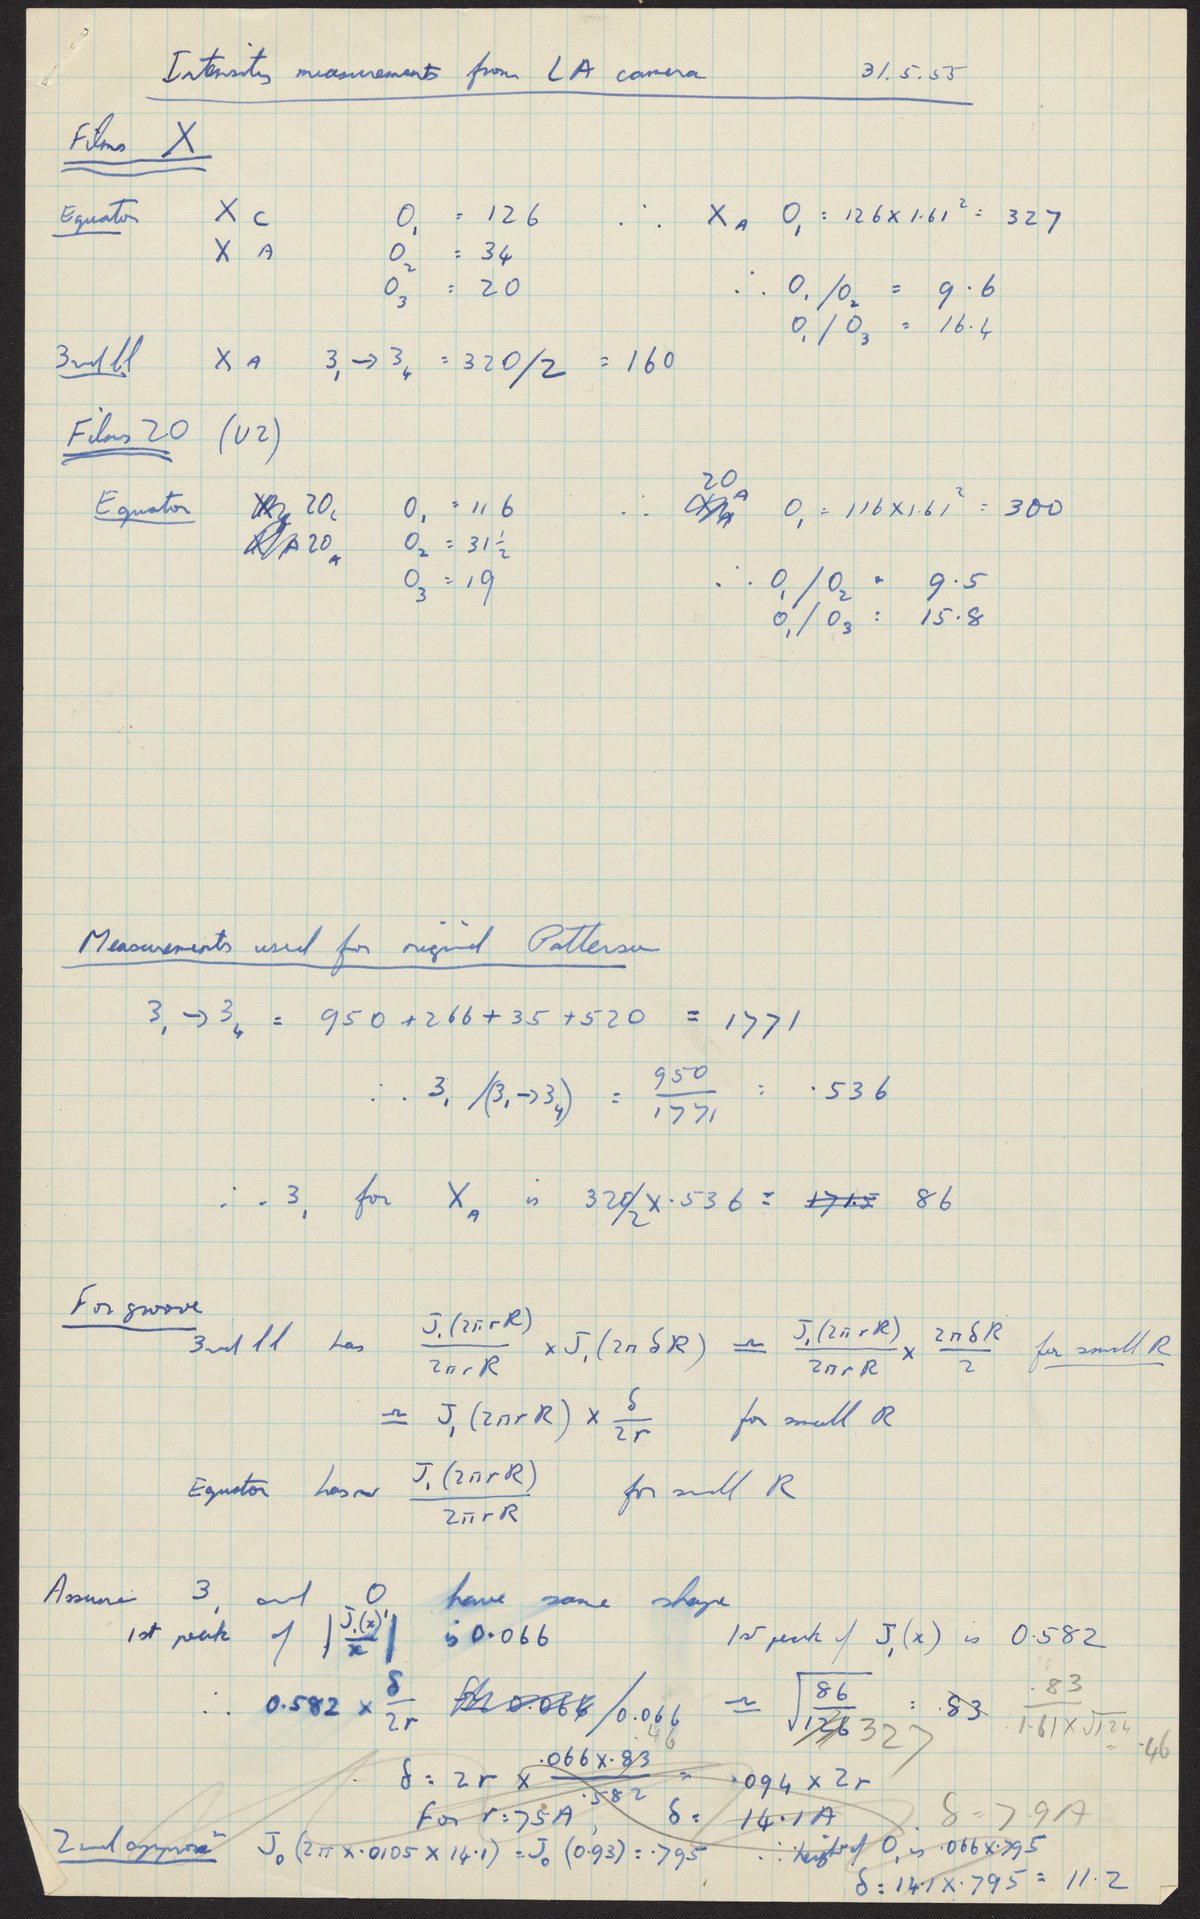 Intensity measurements from LA camera 31.5.55
Films X
Equator X C O₁ = 126 ∴ X A O₁ = 126 × 1.61² = 327
X A O₂ = 34
O₃ = 20 ∴ O₁/O₂ = 9.6
O₁/O₃ = 16.4
3rd ll X A 3₁ → 3₄ = 320/2 = 160
Films 20 (U2)
Equator 20c O₁ = 116 ∴ 20A O₁ = 116 × 1.61² = 300
20A O₂ = 31½
O₃ = 19 ∴ O₁/O₂ = 9.5
O₁/O₃ = 15.8
Measurements used for original Patterson
3₁ → 3₄ = 950 + 266 + 35 + 520 = 1771
∴ 3₁/(3₁→3₄) = 950/1771 = .536
∴ 3₁ for X A is 320/2 × .536 = 171.5 86
For groove
3rd ll has J₁(2πrR)/2πrR × J₁(2πδR) ≃ J₁(2πrR)/2πrR × 2πδR/2 for small R
≃ J₁(2πrR) × δ/2r for small R
Equator has J₁(2πrR)/2πrR for small R
Assume 3₁ and O have same shape
1st peak of |J₁(x)/x| is 0.066 1st peak of J₁(x) is 0.582
∴ 0.582 × δ/2r /0.066 ≃ √86/126 327 = .83 .83/1.61×√126 = .46
.46
δ = 2r × .066 × .83/.582 = .094 × 2r
For r = 75A, δ = 14.1A δ = 7.9A
2nd approxn J₀(2π × .0105 × 14.1) = J₀(0.93) = .795 ∴ height of O₁ is .066 × .795
δ = 14.1 × .795 = 11.2